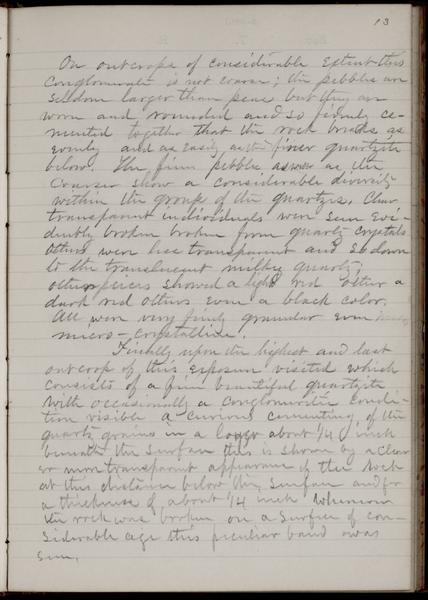 13
On outcrops of considerable extent this
Conglomerate is not coarse; the pebbles are
seldom larger than peas but they are
worn and rounded and so firmly ce-
mented together that the rock breaks as
evenly and as easily as the finer quartzite
below. The finer pebbles as well as the
Coarser show a considerable diversity
within the group of the quartzes. Clear
transparent individuals were seen evi-
dently broken broken from quartz crystals
others were less transparent and so down
to the translucent milky quartz,
other pieces showed a light red other a
dark red others even a black color.
All were very finely granular even
micro-crystalline.
Finally upon the highest and last
outcrop of this exposure visited which
consists of a fine beautiful quartzite
with occasionally a conglomeratic condi-
tion visible a curious cementing of the
quartz grains in a layer about 1/4 inch
beneath the surface this is shown by a clear
or more transparent appearance of the rock
at this distance below the surface and for
a thickness of about 1/4 inch Whenever
the rock was broken on a surface of con-
siderable age this peculiar band was
seen.